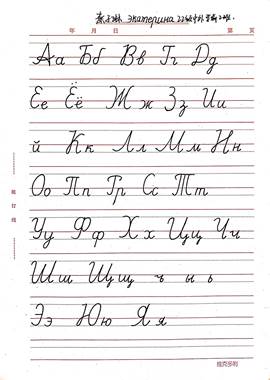 Экатерина
年 月 日 第 页
Аа Бб Вв Гг Дд
Ее Ёё Жж Зз Ии
й Кк Лл Мм Нн
Оо Пп Рр Сс Тт
Уу Фф Хх Цц Чч
Шш Щщ ъ ы ь
Ээ Юю Яя
装订线
维克多利